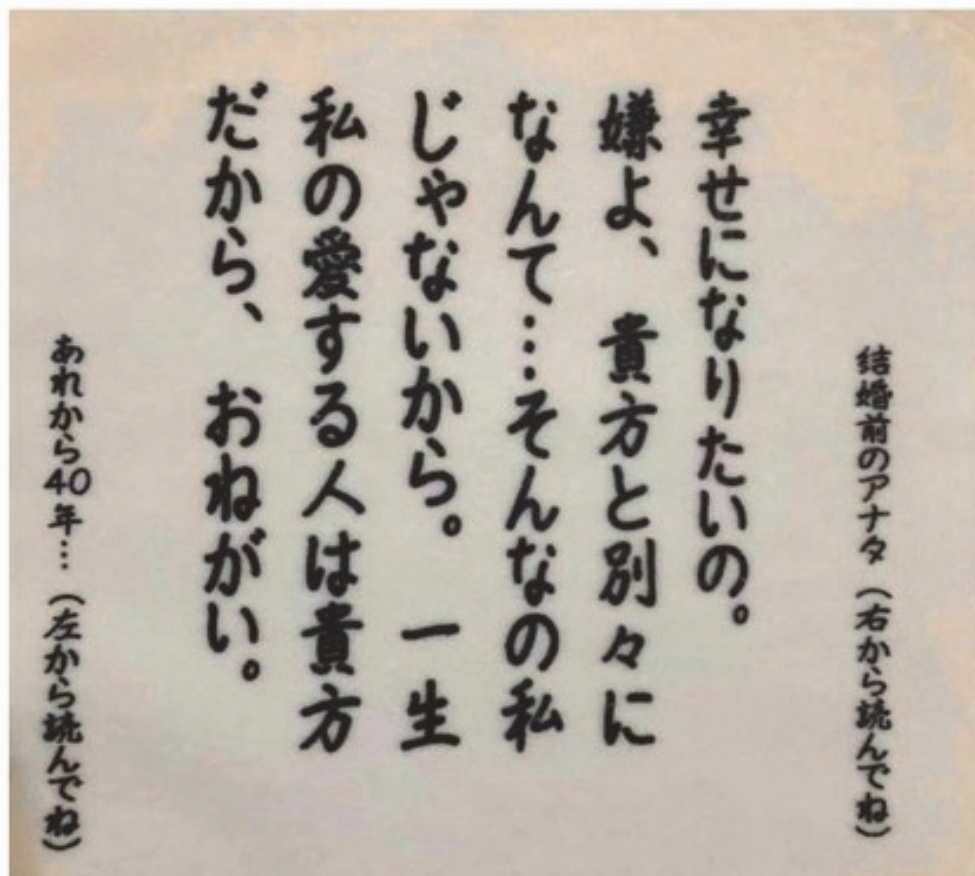 結婚前のアナタ(右から読んでね)
幸せになりたいの。
嫌よ、貴方と別々に
なんて…そんなの私
じゃないから。一生
私の愛する人は貴方
だから、おねがい。
あれから40年…(左から読んでね)